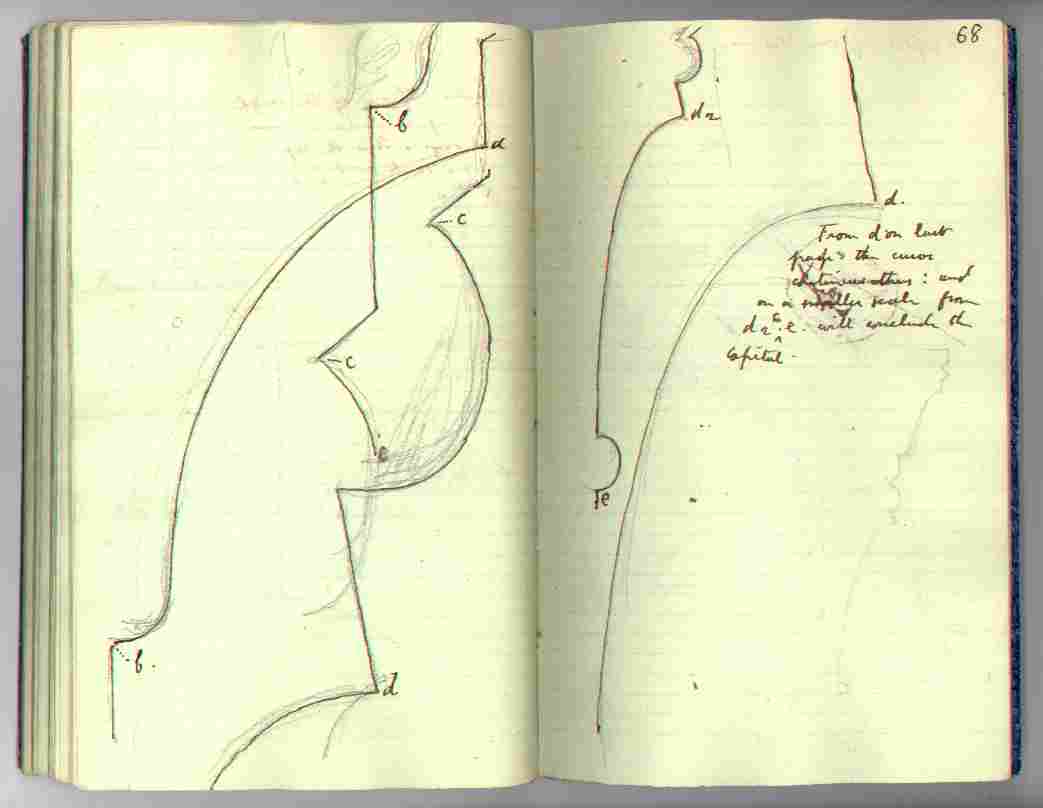 b
a
c
c
e
d
b.
68
d2
d.
From d on last
page the curve
continues thus: and
on a smaller scale from
d2 to e. will conclude the
Capital.
e